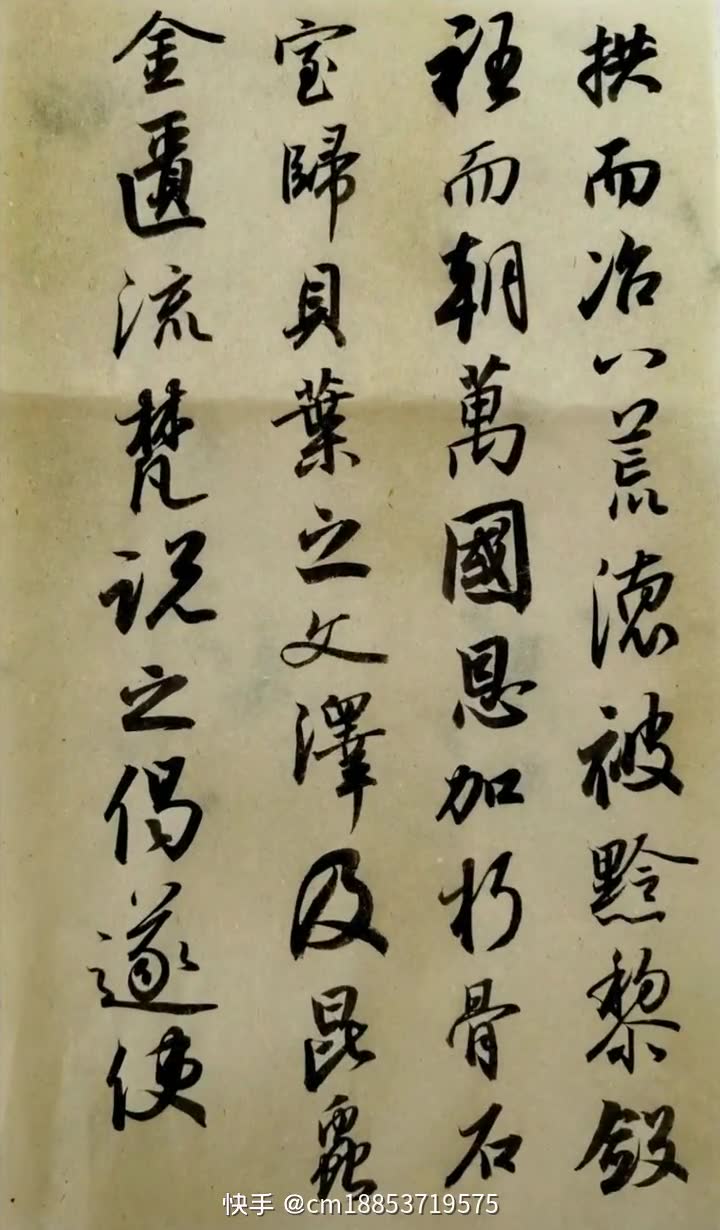 拱而治八荒德被黔黎斂
衽而朝萬國恩加朽骨石
室歸貝葉之文澤及昆蟲
金匱流梵說之偈遂使
快手 @cm18853719575